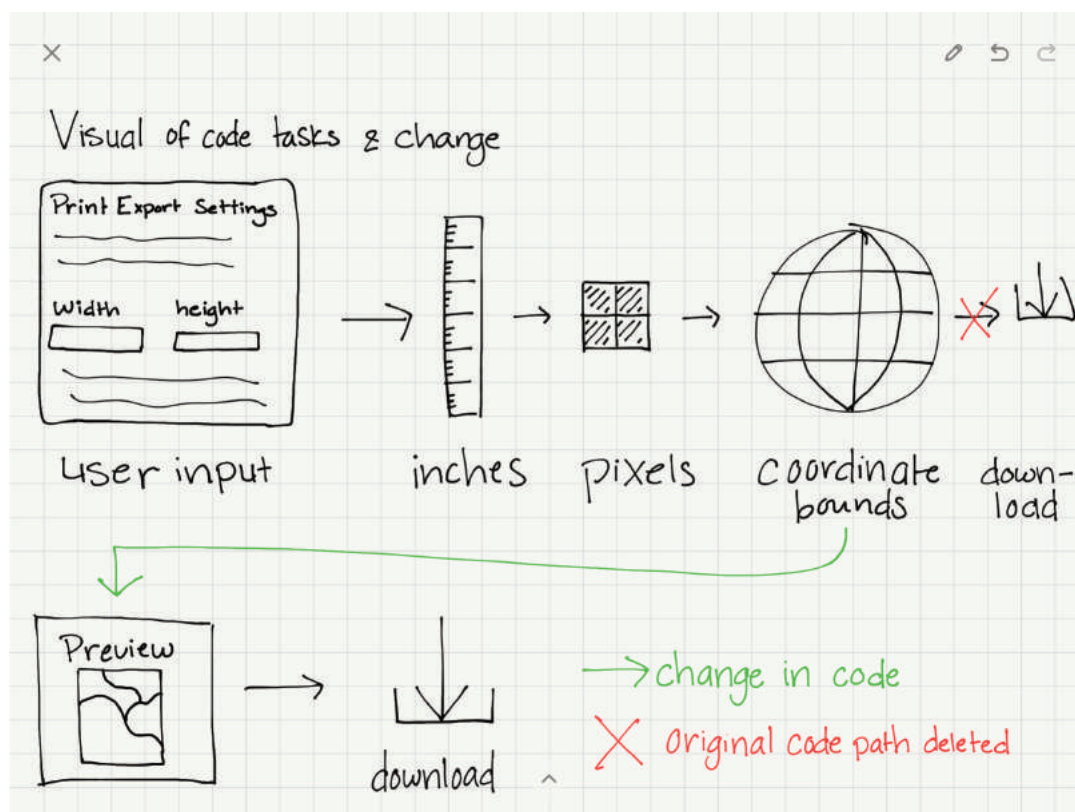 Visual of code tasks & change
Print Export Settings
Width height
user input
inches
pixels
coordinate
bounds
down-
load
Preview
download
change in code
Original code path deleted